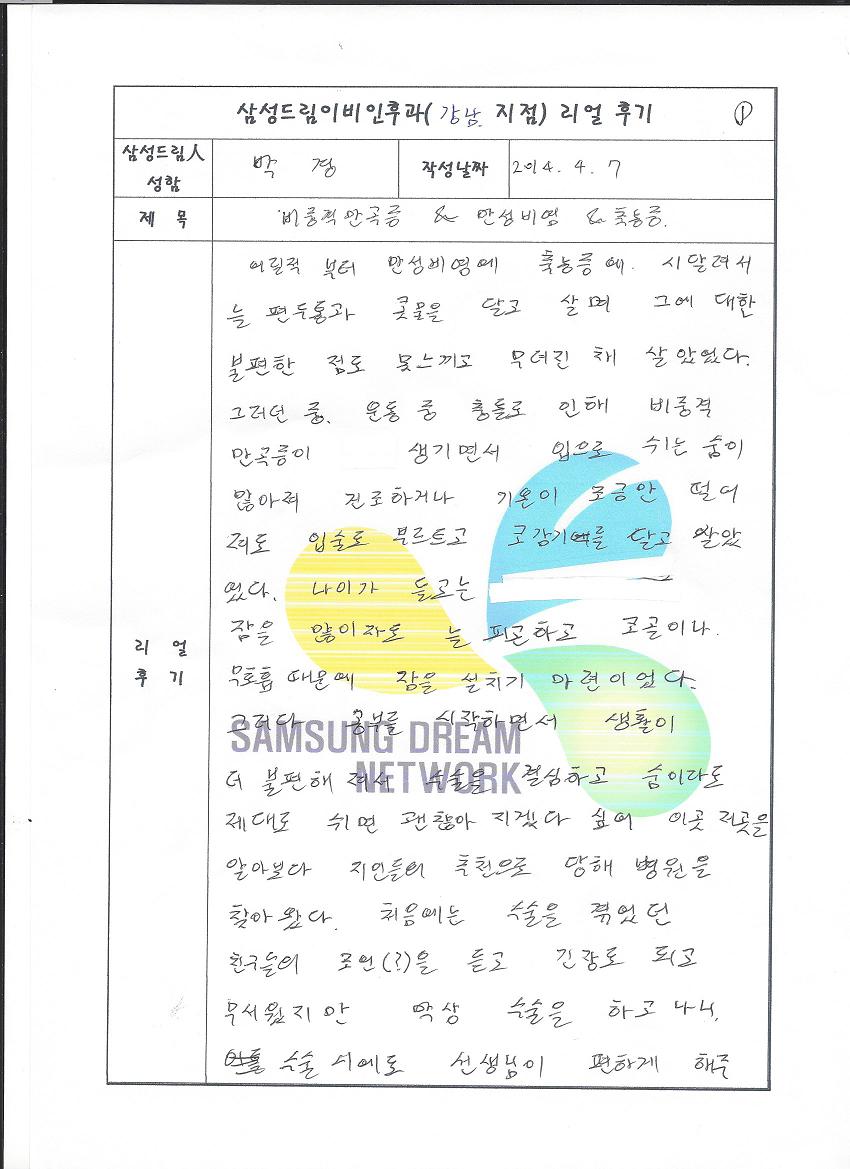 삼성드림이비인후과( 강남 지점) 리얼 후기 ①
삼성드림人 성함 박 경 작성날짜 2014. 4. 7
제 목 비중격만곡증 & 만성비염 & 축농증.
리얼 후기
어릴적 부터 만성비염에 축농증에. 시달려서
늘 편두통과 콧물을 달고 살며 그에 대한
불편한 점도 못느끼고 무뎌진 채 살았었다.
그러던 중. 운동 중 충돌로 인해 비중격
만곡증이 생기면서 입으로 쉬는 숨이
많아져 건조하거나 기온이 조금만 떨어
져도 입술도 부르트고 코감기를 달고 살았
었다. 나이가 들고는
잠을 많이자도 늘 피곤하고 코골이나.
무호흡 때문에 잠을 설치기 마련이었다.
그러다 공부를 시작하면서 생활이
더 불편해 져서 수술을 결심하고 숨이라도
제대로 쉬면 괜찮아 지겠다 싶어 이곳 저곳을
알아보다 지인들의 추천으로 당해 병원을
찾아 왔다. 처음에는 수술을 겪었던
친구들의 조언(?)을 듣고 긴장도 되고
무서웠지만 막상 수술을 하고 나니,
수술 시에도 선생님이 편하게 해주
SAMSUNG DREAM
NETWORK